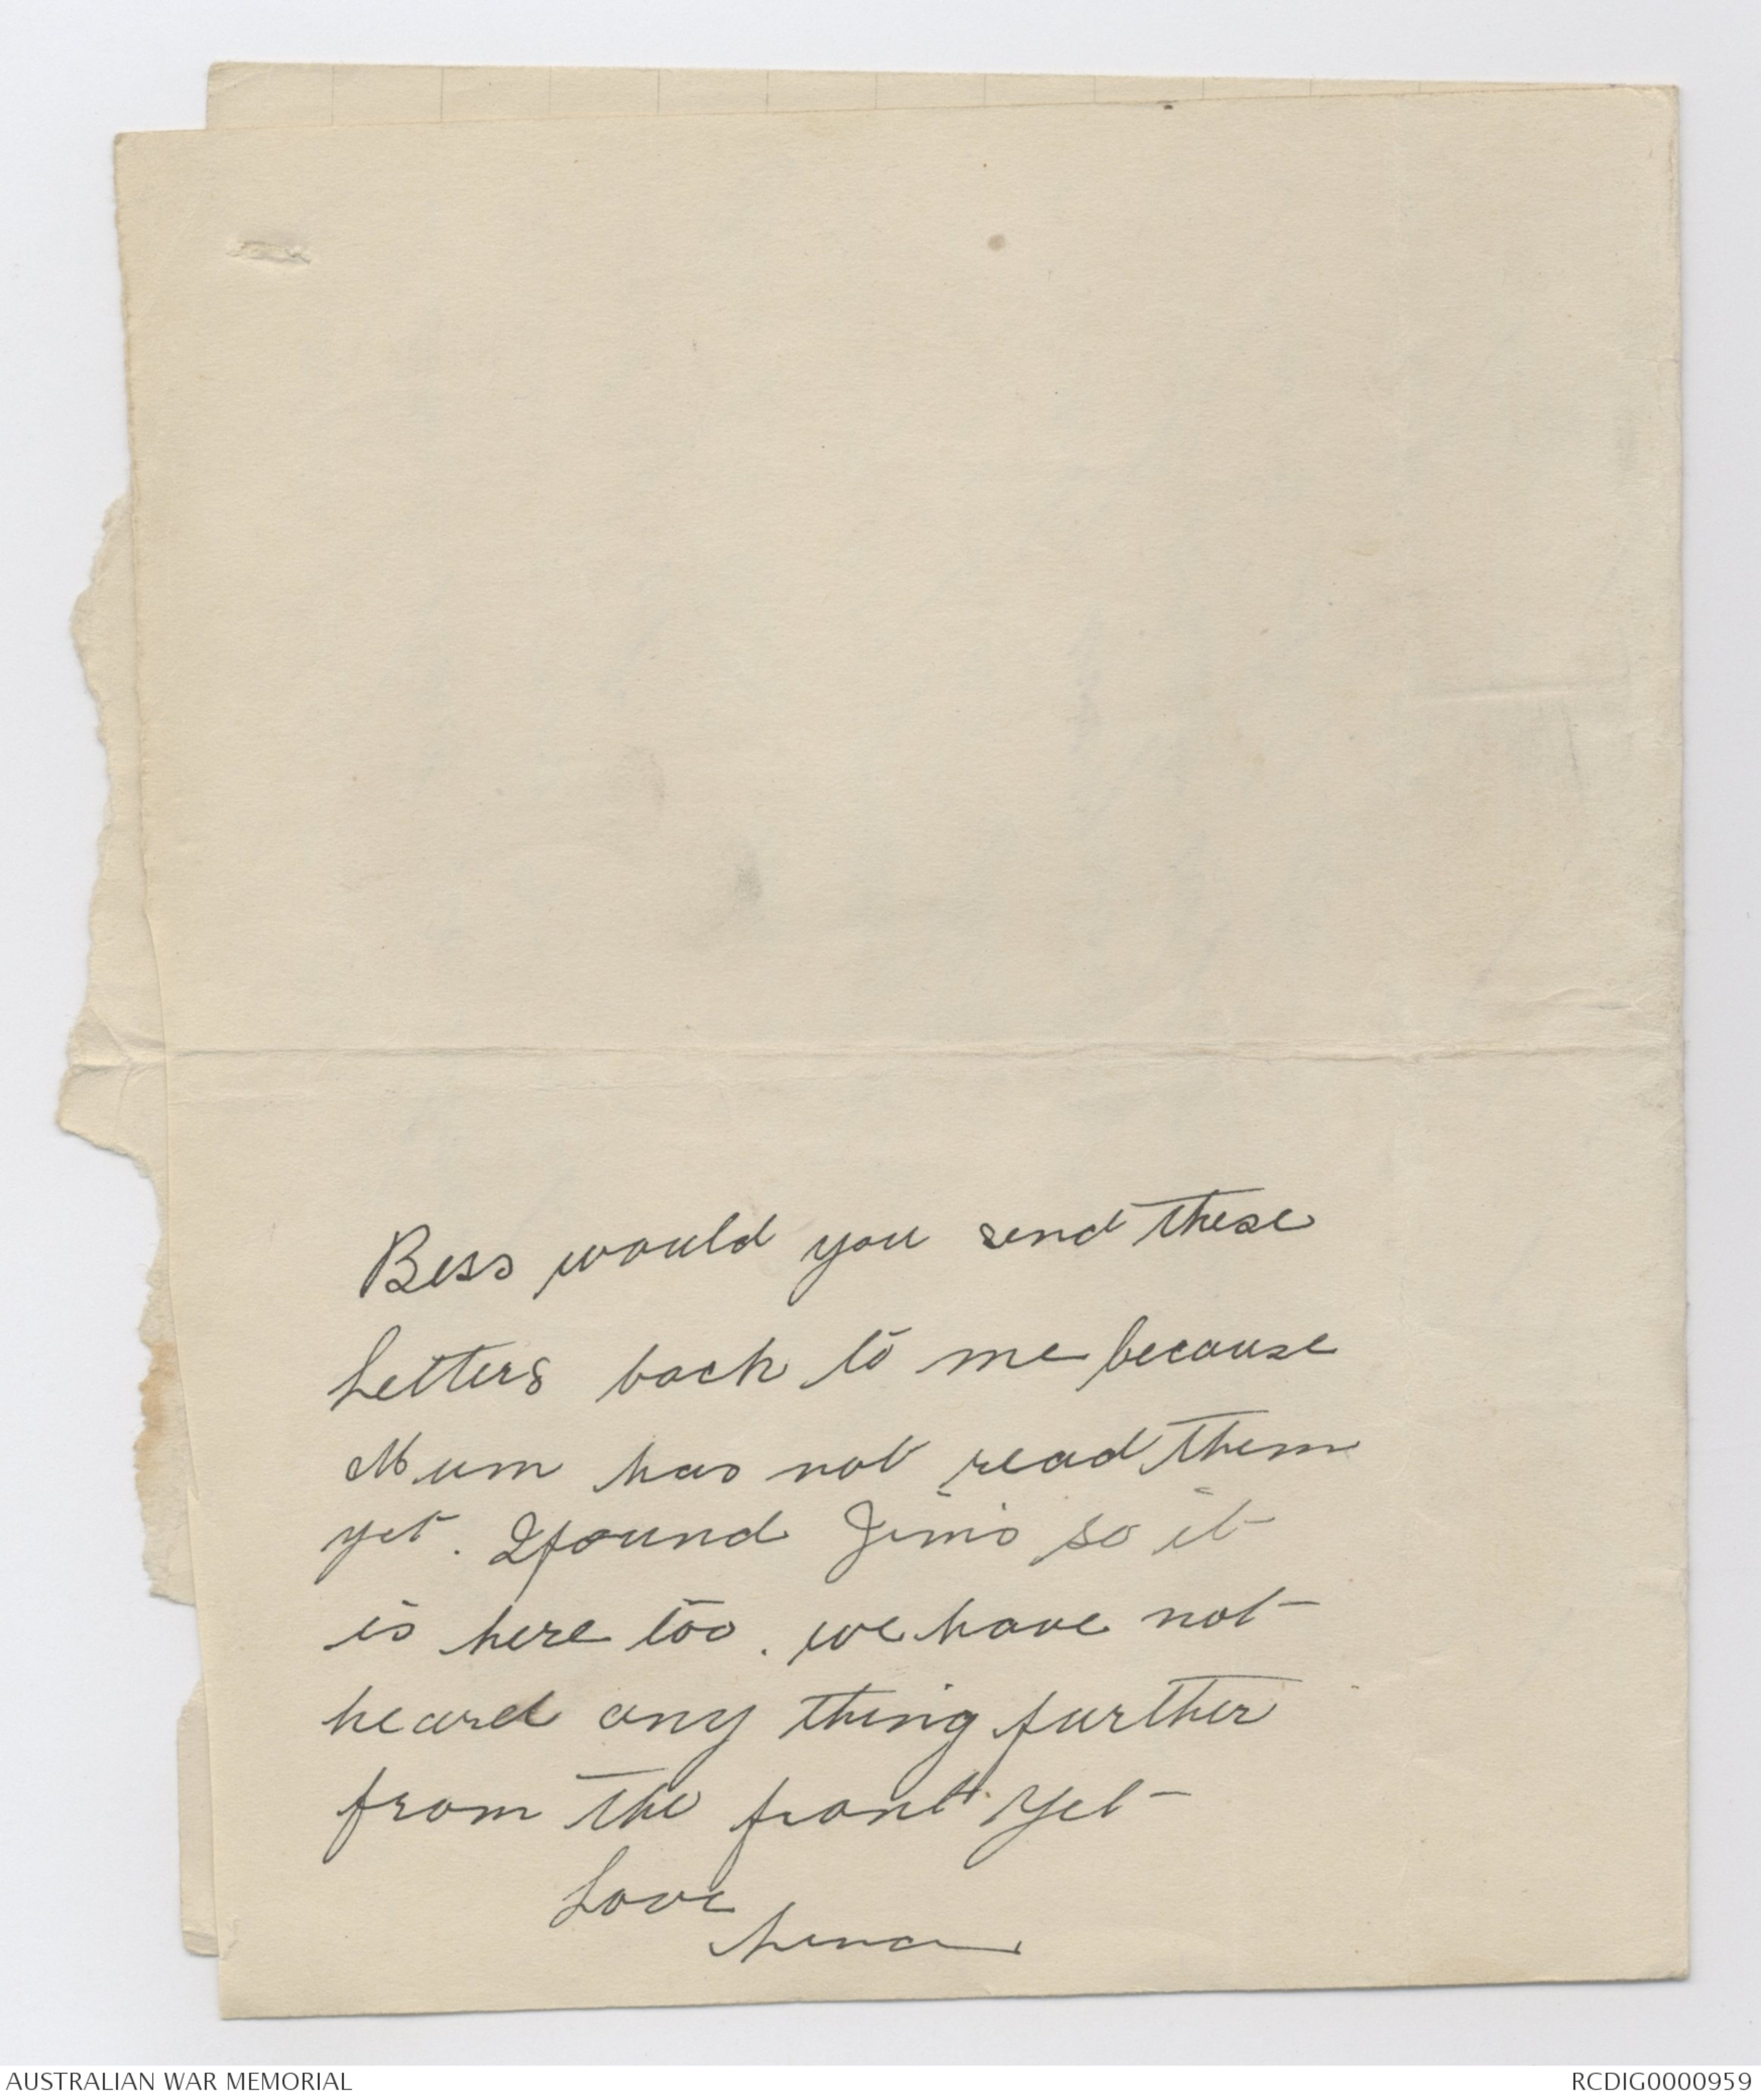 Bess would you send these
Letters back to me because
Mum has not read them
yet. I found Jim's so it
is here too. we have not
heard any thing further
from the front yet
Love
Lena
AUSTRALIAN WAR MEMORIAL
RCDIG0000959